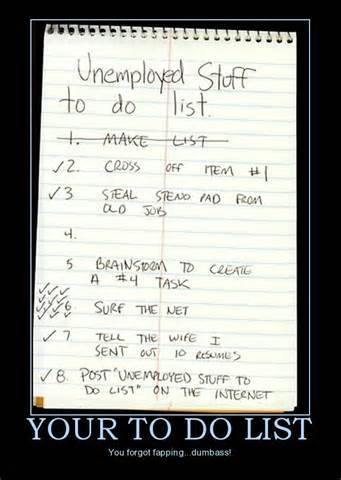 Unemployed Stuff
to do list.
1. MAKE LIST
✓2. CROSS OFF ITEM #1
✓3 STEAL STENO PAD FROM
OLD JOB
4.
5 BRAINSTORM TO CREATE
A #4 TASK
6 SURF THE NET
✓7. TELL THE WIFE I
SENT OUT 10 RESUMES
✓8. POST "UNEMPLOYED STUFF TO
DO LIST" ON THE INTERNET
YOUR TO DO LIST
You forgot fapping...dumbass!